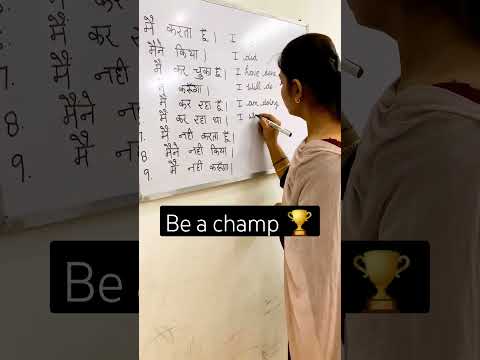 मैं करता हूँ। I
मैंने किया। I did
मैं कर चुका हूँ। I have done
मैं करूँगा। I will do
मैं कर रहा हूँ। I am doing
मैं कर रहा था। I
7. मैं नही करता हूँ।
8 मैंने नही किया।
9. मैं नही करूँगा।
Be a champ 🏆